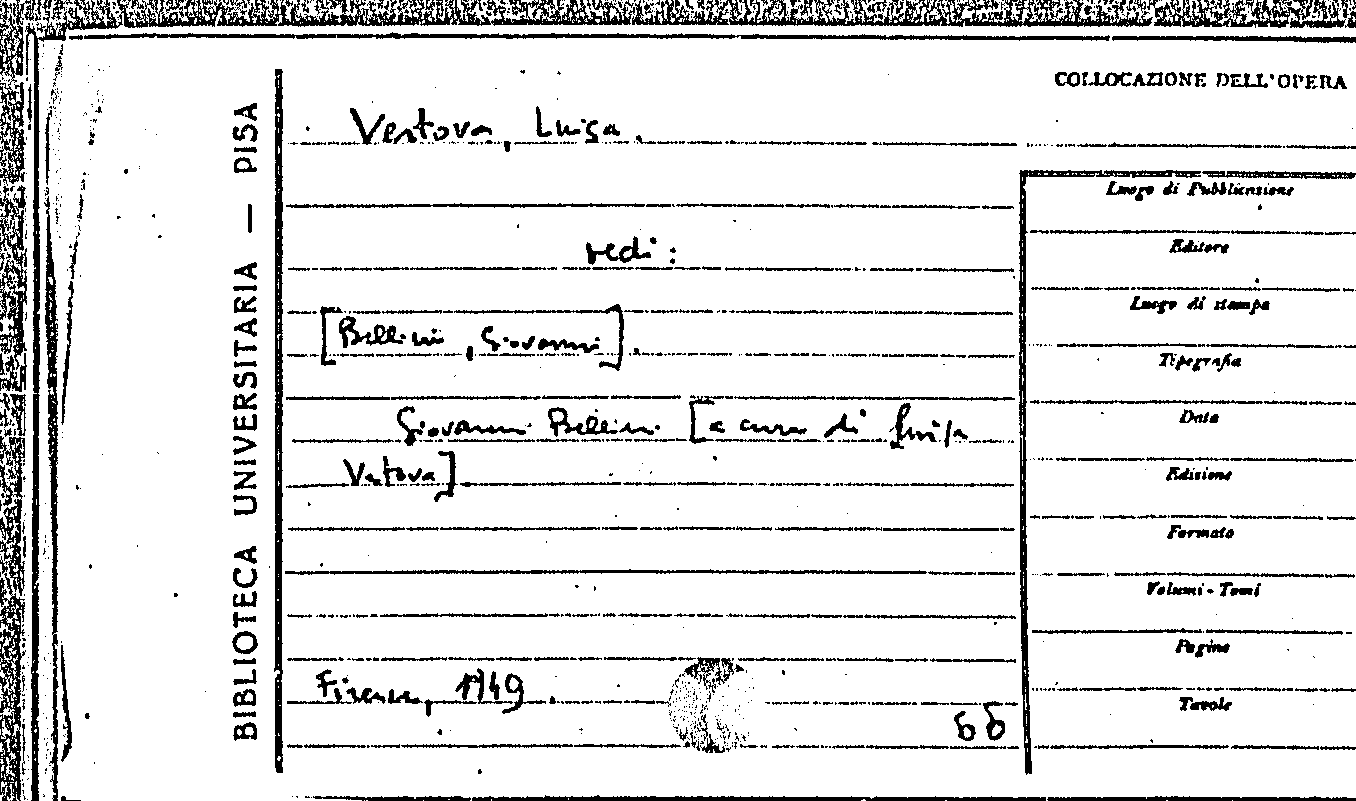 COLLOCAZIONE DELL'OPERA
BIBLIOTECA UNIVERSITARIA — PISA
Vertova, Luisa.
vedi:
[Bellini, Giovanni].
Giovanni Bellini [a cura di Luisa
Vertova]
Firenze, 1949.
Luogo di Pubblicazione
Editore
Luogo di stampa
Tipografia
Data
Edizione
Formato
Volumi - Tomi
Pagine
Tavole